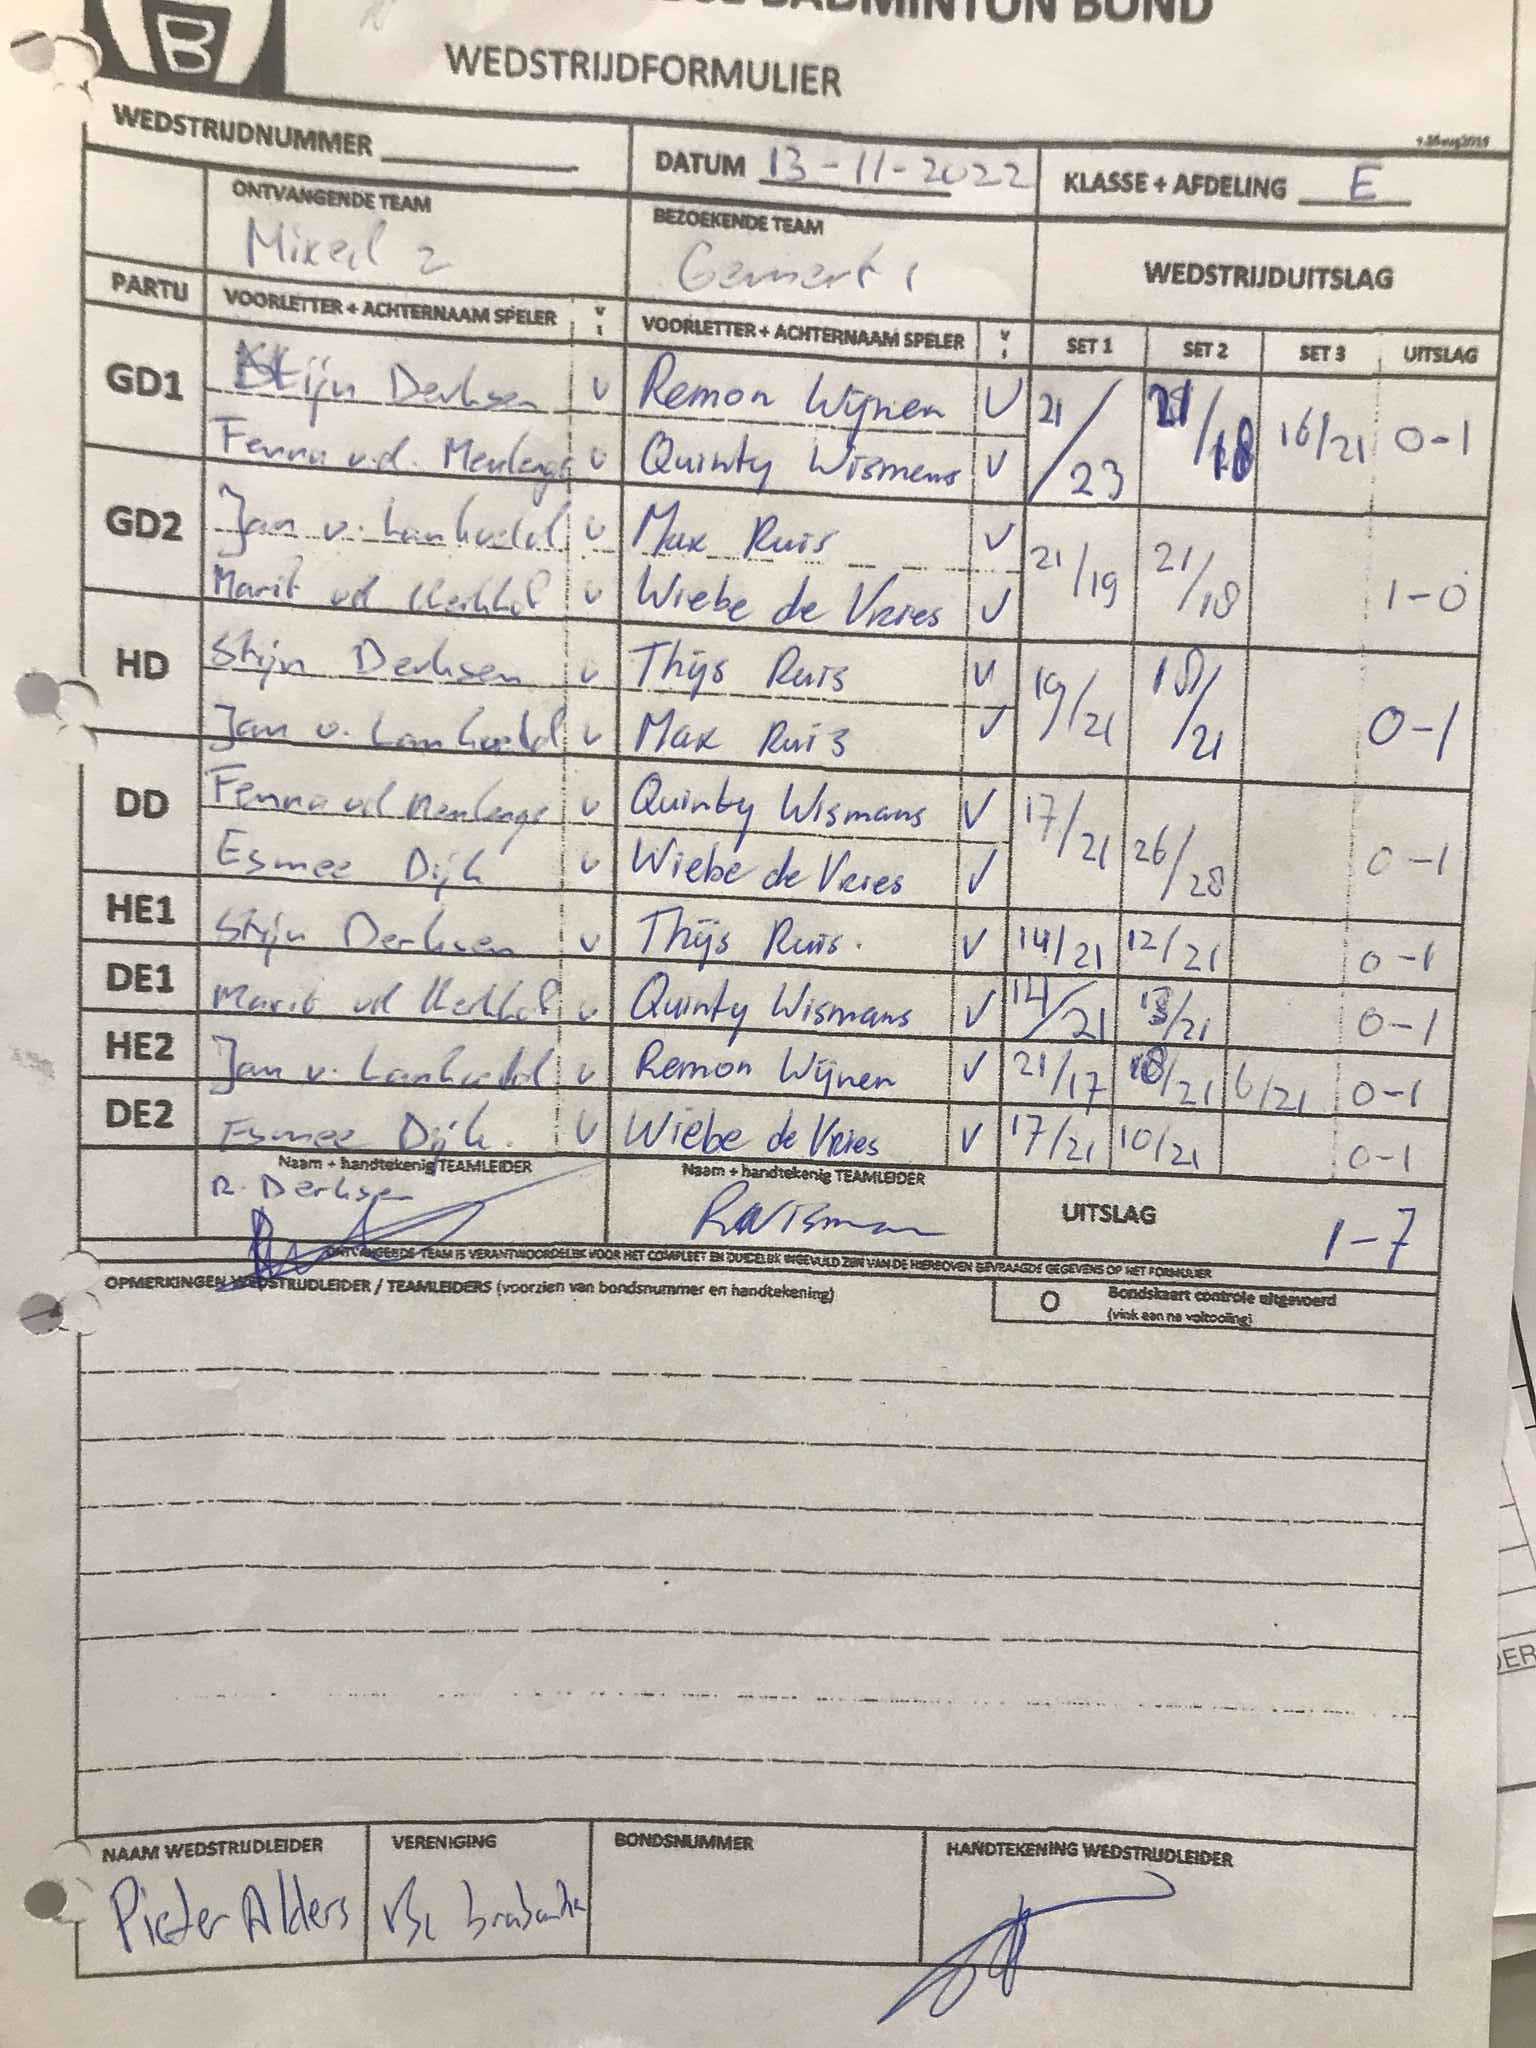 BADMINTON BOND
WEDSTRIJDFORMULIER
WEDSTRIJDNUMMER
DATUM 13-11-2022
KLASSE + AFDELING E
ONTVANGENDE TEAM
Mixed 2
BEZOEKENDE TEAM
Gemert 1
WEDSTRIJDUITSLAG
PARTIJ VOORLETTER + ACHTERNAAM SPELER VOORLETTER + ACHTERNAAM SPELER SET 1 SET 2 SET 3 UITSLAG
GD1 Stijn Derksen v Remon Wijnen v 21/23 21/18 16/21 0-1
Fenna v.d. v Quinty Wismans v
GD2 Jan v. v Max Ruis v 21/19 21/18 1-0
Marit vd Kerkhof v Wiebe de Vries v
HD Stijn Derksen v Thijs Ruis v 19/21 18/21 0-1
Jan v. v Max Ruis v
DD Fenna vd v Quinty Wismans v 17/21 26/28 0-1
Esmee Dijk v Wiebe de Vries v
HE1 Stijn Derksen v Thijs Ruis. v 14/21 12/21 0-1
DE1 Marit vd Kerkhof v Quinty Wismans v 14/21 13/21 0-1
HE2 Jan v. v Remon Wijnen v 21/17 18/21 6/21 0-1
DE2 Esmee Dijk. v Wiebe de Vries v 17/21 10/21 0-1
Naam + handtekenig TEAMLEIDER
R. Derksen
Naam + handtekenig TEAMLEIDER
UITSLAG 1-7
ONTVANGENDE TEAM IS VERANTWOORDELIJK VOOR HET COMPLEET EN DUIDELIJK INGEVULD ZIJN VAN DE HIERBOVEN GEVRAAGDE GEGEVENS OP HET FORMULIER
OPMERKINGEN WEDSTRIJDLEIDER / TEAMLEIDERS (voorzien van bondsnummer en handtekening)
O Bondskaart controle uitgevoerd
(vink aan na voltooiing)
NAAM WEDSTRIJDLEIDER
Pieter Alders
VERENIGING
BONDSNUMMER
HANDTEKENING WEDSTRIJDLEIDER